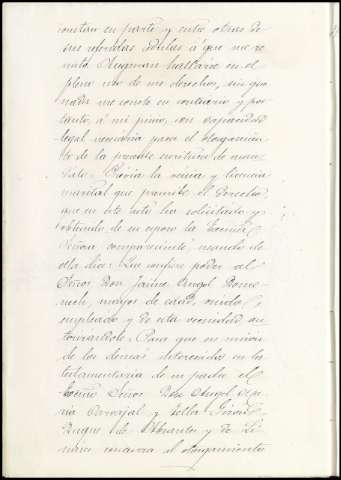 constan en parte y entre otras de
sus referidas cédulas á que me re
mito. Aseguran hallarse en el
pleno uso de sus derechos, sin que
nada me conste en contrario y por
tanto, á mi juicio, con capacidad
legal necesaria para el otorgamien
to de la presente escritura de man
dato. Prévia la vénia y licencia
marital que previene el Derecho,
que en este acto ha solicitado y
obtenido de su esposo la Excma.
Señora compareciente, usando de
ella dice: Que confiere poder al
Señor Don Jaime Angel
mayor de edad, casado,
empleado y de esta vecindad, au
torizandole: Para que en union
de los demás interesados en la
testamentaria de su padre el
Excmo Señor Don Angel
Carvajal y Tellez Girón,
Duque de Abrantes y de Li
nares concurra al otorgamiento